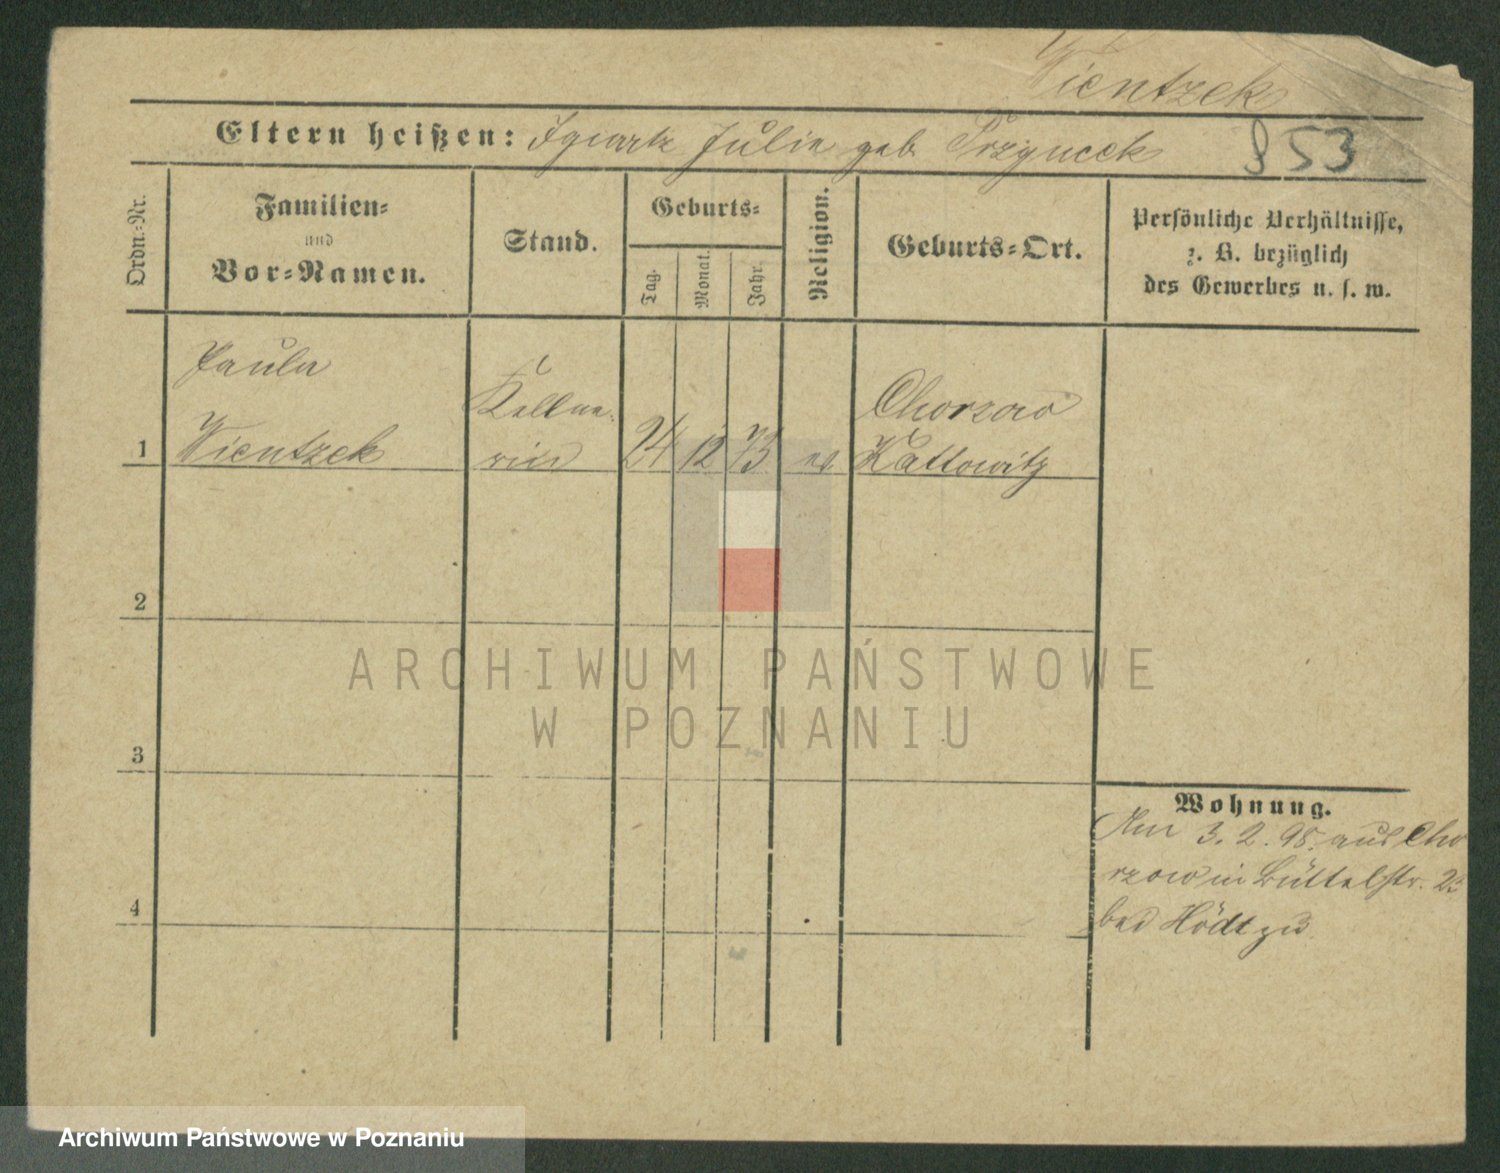 Wientzek
853
Eltern heißen: Ignatz Julie geb Przyucek
Ordn.-Nr.
Familien-
und
Vor-Namen.
Stand.
Geburts-
Tag.
Monat.
Jahr.
Religion.
Geburts-Ort.
Persönliche Verhältnisse,
z. B. bezüglich
des Gewerbes u. s. w.
Paula
Wientzek
Kellne-
rin
24 12 73
Chorzow
Kattowitz
1
2
3
4
Wohnung.
Am 3. 2. 98. aus Cho
rzow in Büttelstr. 23
bei Hödt zu
ARCHIWUM PAŃSTWOWE
W POZNANIU
Archiwum Państwowe w Poznaniu